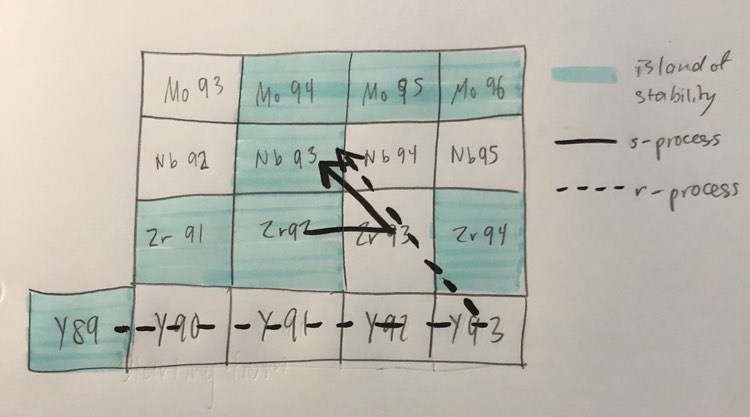 Mo 93 Mo 94 Mo 95 Mo 96
Nb 92 Nb 93 Nb 94 Nb95
Zr 91 Zr92 Zr93 Zr 94
Y89 Y-90 Y-91 Y92 Y93
island of
stability
s-process
r-process